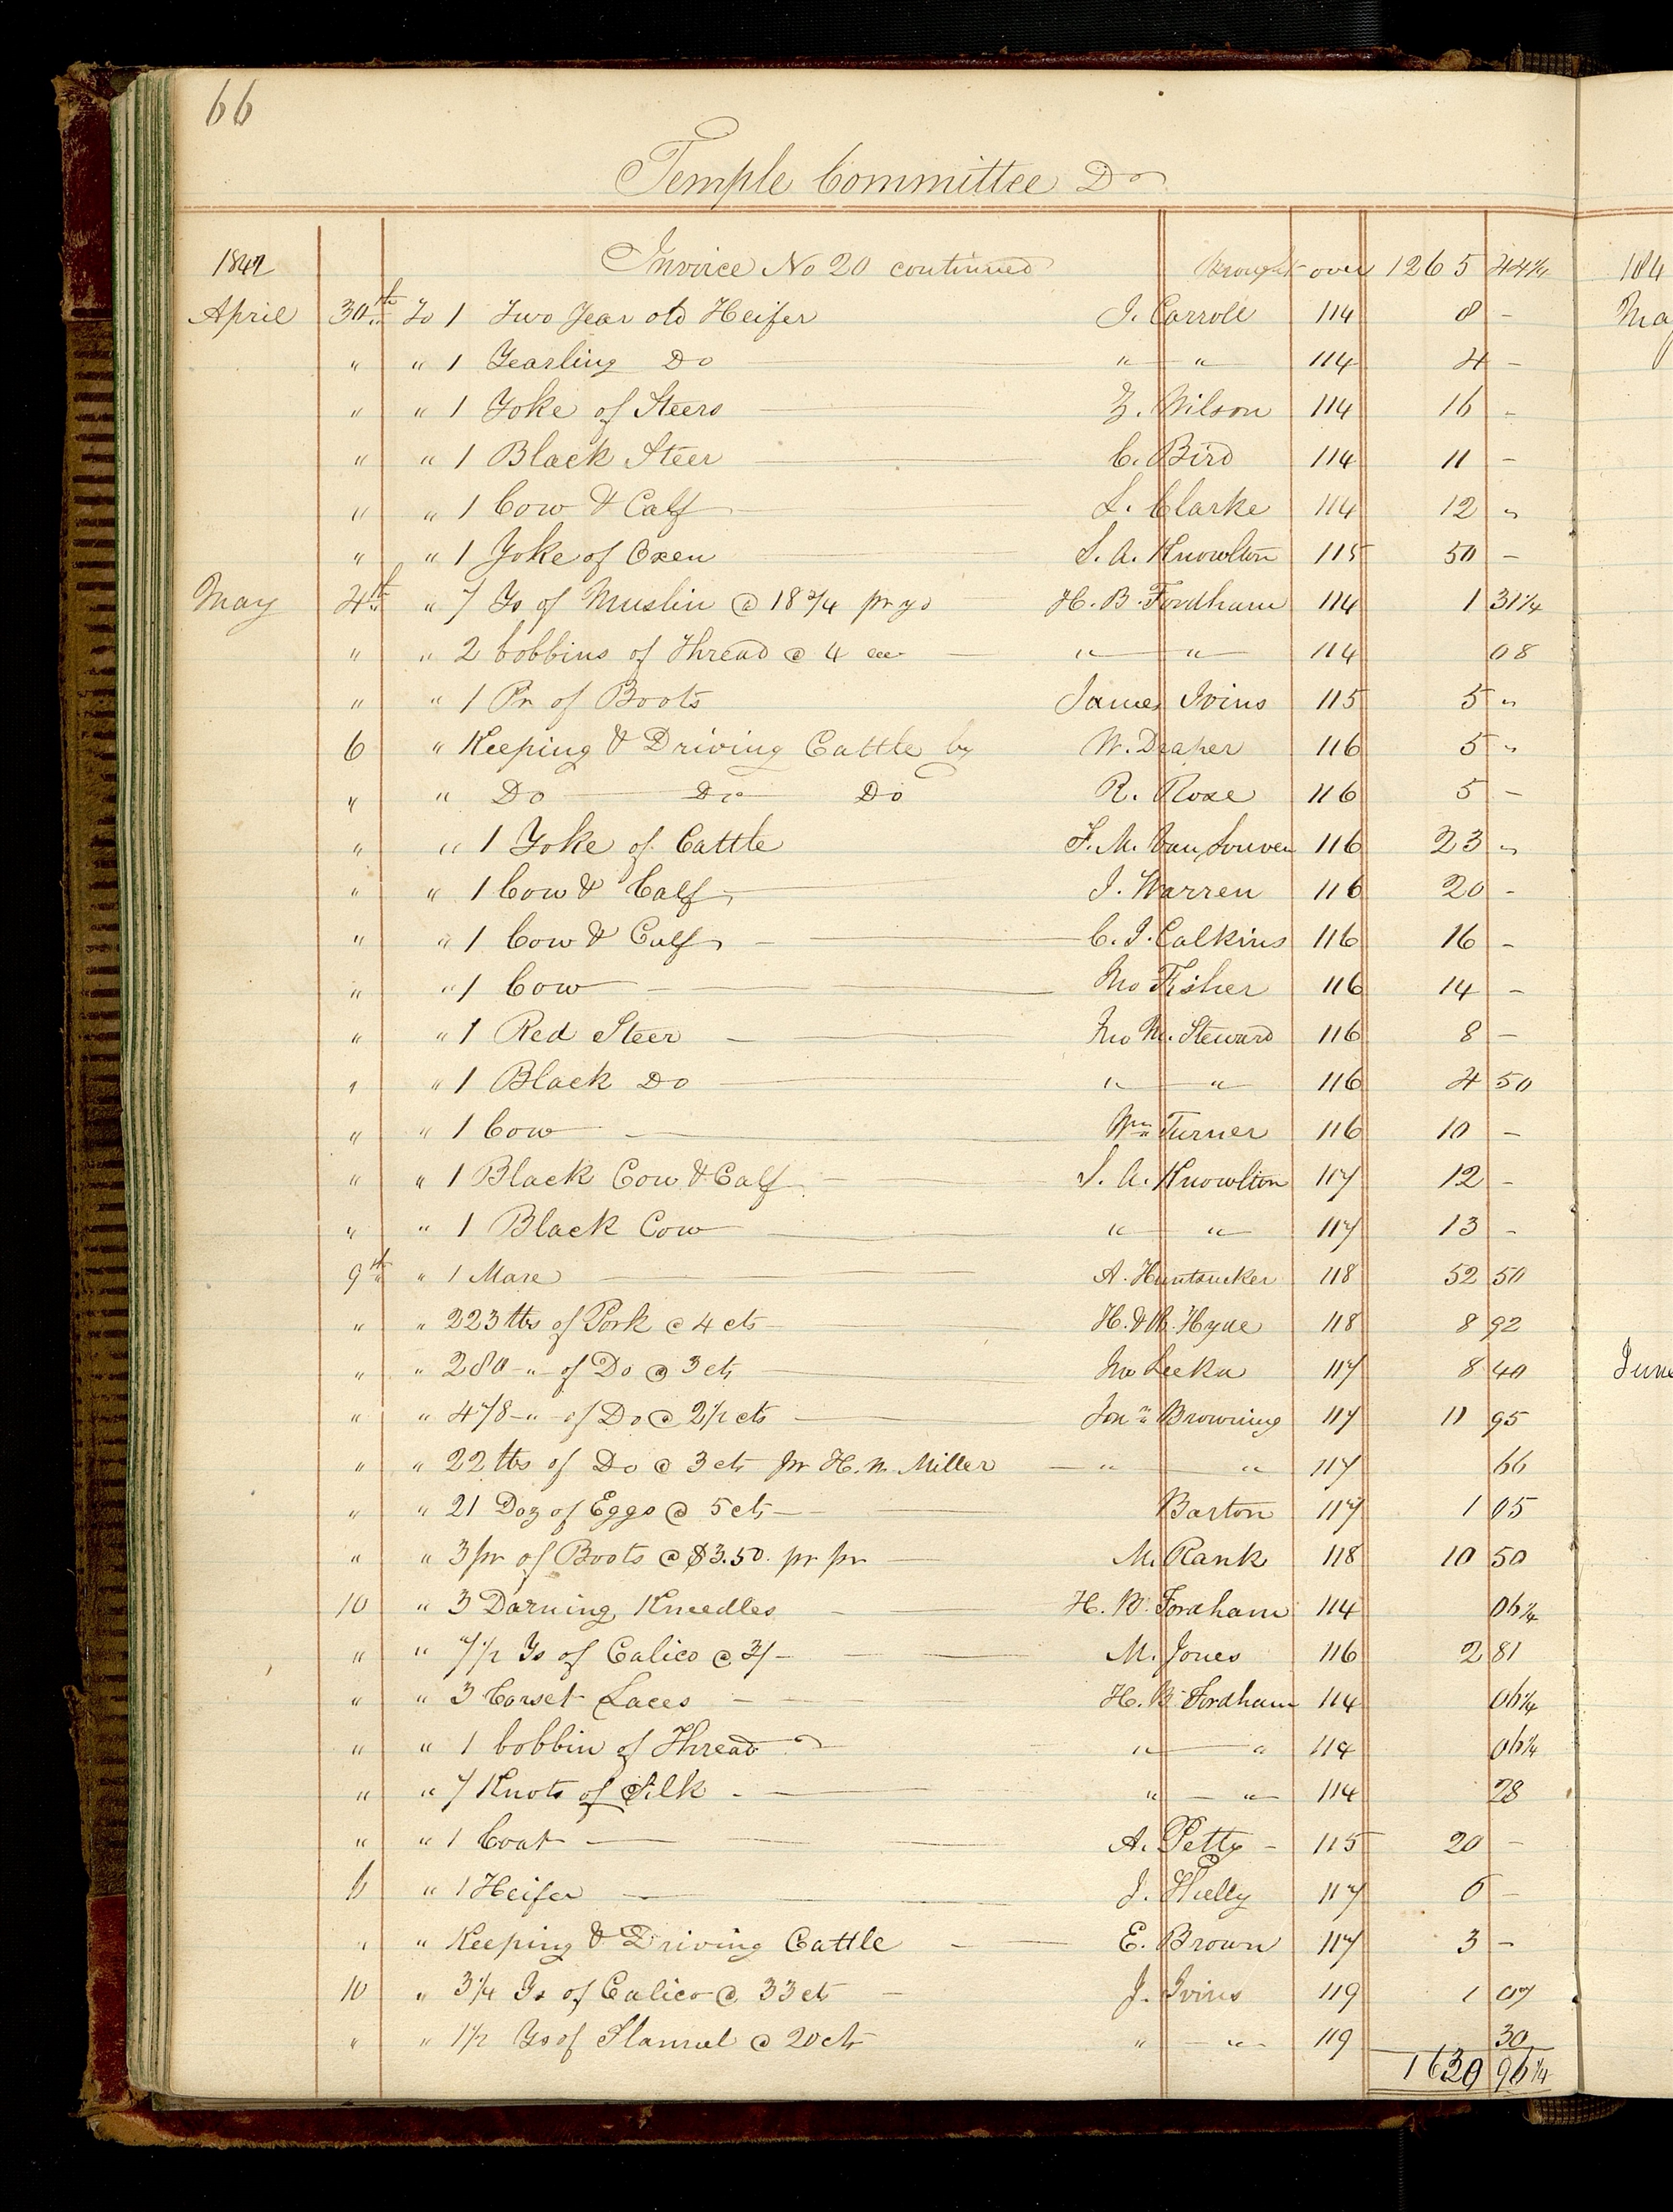 66
Temple Committee Dr
1842 Invoice No 20 continued Brought over 1265 44¾
April 30th To 1 Two Year old Heifer J. Carroll 114 8 -
" " 1 Yearling Do " " 114 4 -
" " 1 Yoke of Steers Z. Wilson 114 16 -
" " 1 Black Steer C. Bird 114 11 -
" " 1 Cow & Calf L. Clarke 114 12 "
" " 1 Yoke of Oxen S. A. Knowlton 115 50 -
May 4th " 7 Ys of Muslin @ 18¾ pr yd H. B. Fordham 114 1 31¼
" " 2 bobbins of Thread @ 4 ea " " 114 08
" " 1 Pr of Boots James Ivins 115 5 "
6 " Keeping & Driving Cattle by W. Draper 116 5 "
" " Do Do Do R. Rose 116 5 -
" " 1 Yoke of Cattle F. M. Van 116 23 "
" " 1 Cow & Calf J. Warren 116 20 -
" " 1 Cow & Calf C. J. Calkins 116 16 -
" " 1 Cow Jno Fisher 116 14 -
" " 1 Red Steer Jno M. Steward 116 8 -
" " 1 Black Do " " 116 4 50
" " 1 Cow Wm Turner 116 10 -
" " 1 Black Cow & Calf S. A. Knowlton 117 12 -
" " 1 Black Cow " " 117 13 -
9th " 1 Mare A. Huntsucker 118 52 50
" " 223 lbs of Pork @ 4 cts H. & R. Hyde 118 8 92
" " 280 " of Do @ 3 cts Jno Leeka 117 8 40
" " 478 " of Do @ 2½ cts Jona Browning 117 11 95
" " 22 lbs of Do @ 3 cts pr H. W. Miller " " 117 66
" " 21 Doz of Eggs @ 5 cts Barton 117 1 05
" " 3 pr of Boots @ $3.50 pr pr M. Rank 118 10 50
10 " 3 Darning Kneedles H. B. Fordham 114 06¼
" " 7½ Ys of Calico @ 3/- M. Jones 116 2 81
" " 3 Corset Laces H. B. Fordham 114 06¼
" " 1 bobbin of Thread " " 114 06¼
" " 7 Knots of Silk " " 114 28
" " 1 Coat A. Petty 115 20 -
6 " 1 Heifer J. 117 6 -
" " Keeping & Driving Cattle E. Brown 117 3 -
10 " 3¼ Ys of Calico @ 33 cts J. Ivins 119 1 07
" " 1½ Ys of Flannel @ 20 cts " " 119 30
1630 96¼
184
May
June